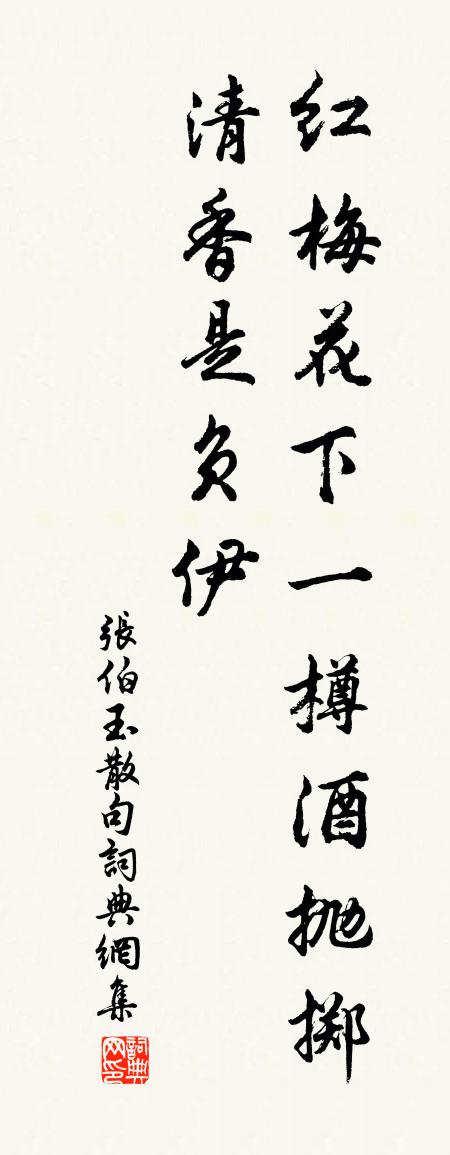 红梅花下一樽酒抛掷
清香是负伊
張伯玉散句詞典網集
詞典网印